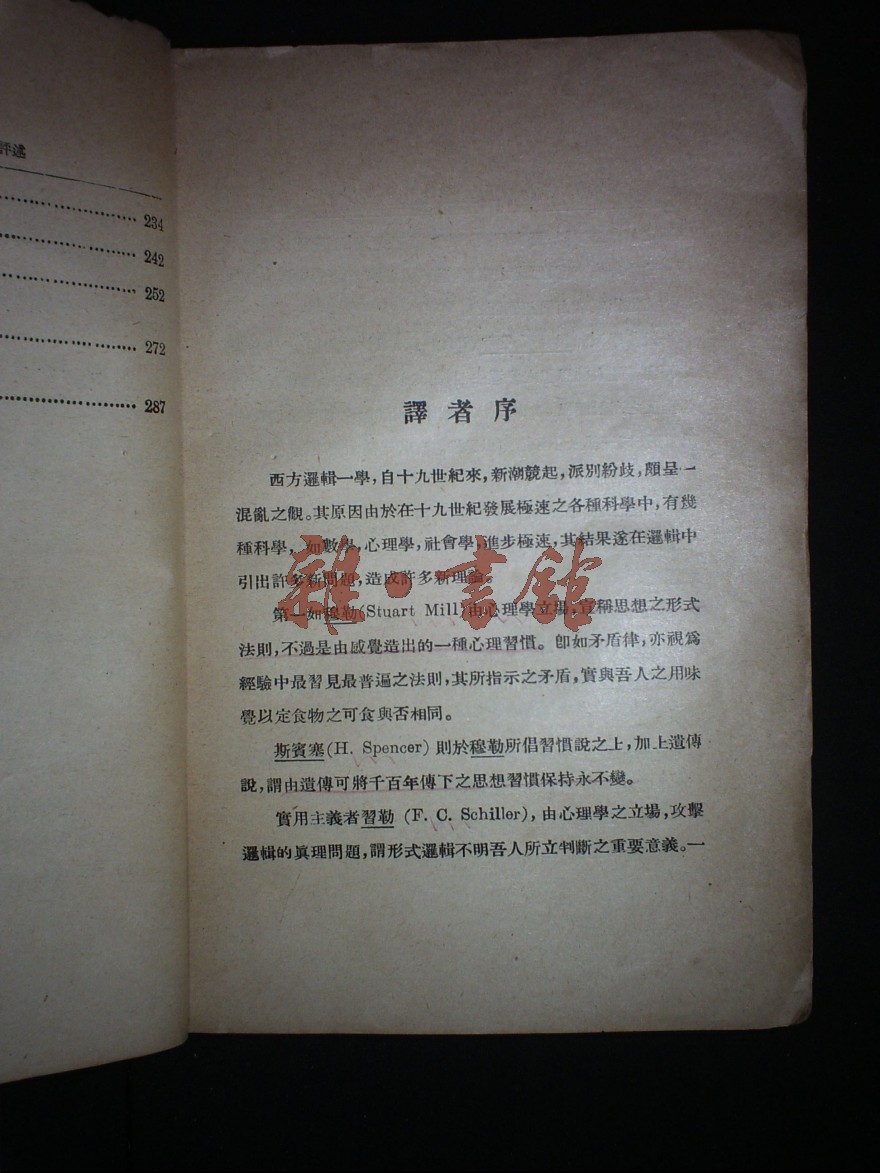 評述
234
242
252
272
287
譯者序
西方邏輯一學，自十九世紀來，新潮競起，派別紛歧，頗呈一
混亂之觀。其原因由於在十九世紀發展極速之各種科學中，有幾
種科學，如數學，心理學，社會學，進步極速，其結果遂在邏輯中
引出許多新問題，造成許多新理論。
第一如穆勒(Stuart Mill)由心理學立場，宣稱思想之形式
法則，不過是由感覺造出的一種心理習慣。卽如矛盾律，亦視爲
經驗中最習見最普遍之法則，其所指示之矛盾，實與吾人之用味
覺以定食物之可食與否相同。
斯賓塞(H. Spencer)則於穆勒所倡習慣說之上，加上遺傳
說，謂由遺傳可將千百年傳下之思想習慣保持永不變。
實用主義者習勒 (F. C. Schiller)，由心理學之立場，攻擊
邏輯的眞理問題，謂形式邏輯不明吾人所立判斷之重要意義。一
雜·書館